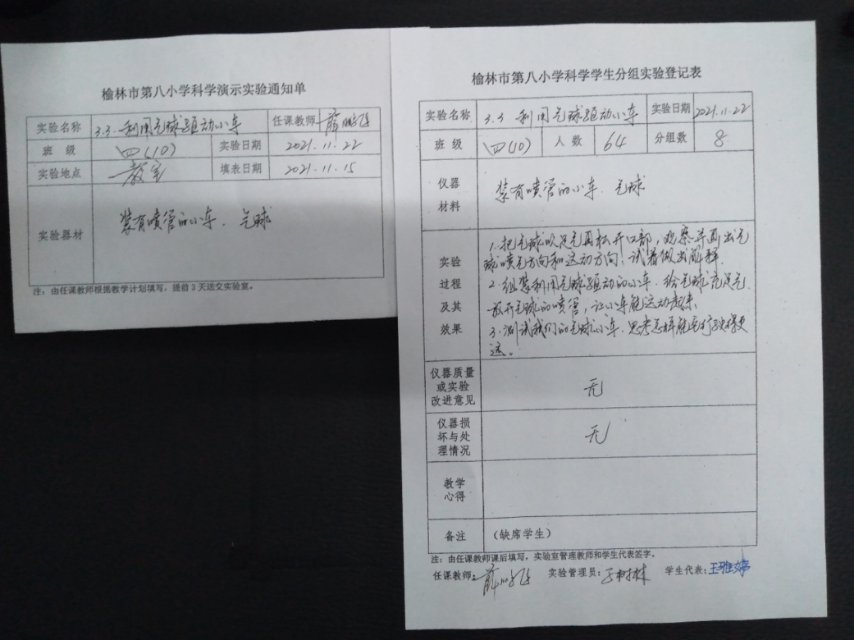 榆林市第八小学科学演示实验通知单
实验名称 3.3.利用气球驱动小车 任课教师
班 级 四(10) 实验日期 2021.11.22
实验地点 教室 填表日期 2021.11.15
实验器材 装有喷管的小车、气球
注：由任课教师根据教学计划填写，提前3天送交实验室。
榆林市第八小学科学学生分组实验登记表
实验名称 3.3.利用气球驱动小车 实验日期 2021.11.22
班 级 四(10) 人 数 64 分组数 8
仪器
材料
装有喷管的小车、气球
实验
过程
及其
效果
1.把气球吹足气再松开口部，观察并画出气
球喷气方向和运动方向！试着做出解释。
2.组装利用气球驱动的小车。给气球充足气
放开气球的喷管，让小车能运动起来。
3.测试我们的气球小车，思考怎样能行驶得更
远。
仪器质量
或实验
改进意见
无
仪器损
坏与处
理情况
无
教学
心得
备注 （缺席学生）
注：由任课教师课后填写，实验室管理教师和学生代表签字。
任课教师： 实验管理员： 学生代表：王雅婷